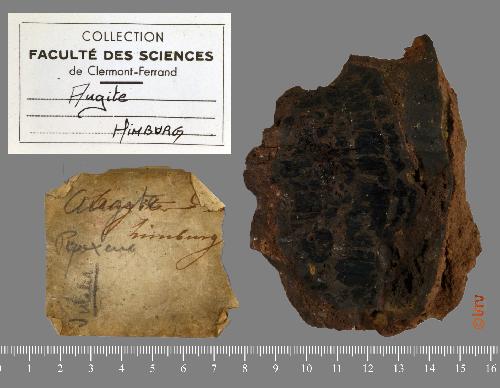 COLLECTION
FACULTÉ DES SCIENCES
de Clermont-Ferrand
Augite
HIMBURG
Augite
Limburg
Pyroxene
1 2 3 4 5 6 7 8 9 10 11 12 13 14 15 16
©brv